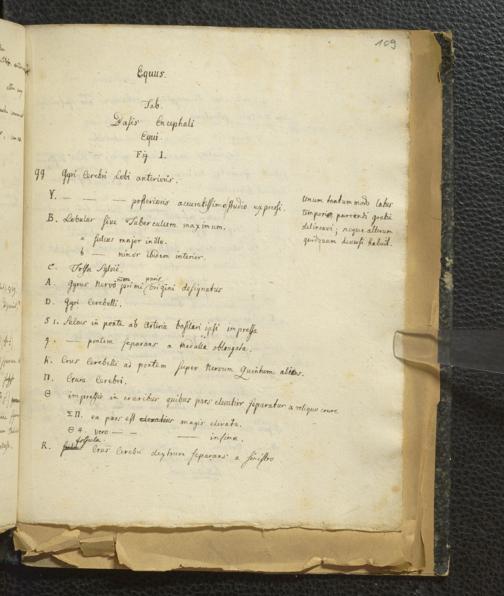 109
Equus.
Tab.
Basis Encephali
Equi.
Fig. 1.
gg Gyri Cerebri Lobi anterioris.
Y. — — — posterioris accuratissimo studio expressi.
B. Lobulus sive Tuberculum maximum.
a sulcus major in illo.
b — minor ibidem interior.
C. Fossa Sylvii.
A. Gyrus Nervo primi paris origini designatus
D. Gyri Cerebelli.
S 1. Sulcus in ponte ab Arteria basilari ipsi impressa
9. — pontem separans a Medulla oblongata.
k. Crus Cerebelli ad pontem super Nervum Quintum
Π. Crura Cerebri.
Θ impressio in cruribus quibus pars elevatior separatur a reliquo crure
ΣΠ. ea pars est magis elevata.
Θ 4. vero — — — infima.
fossula
R. Crus Cerebri dextrum separans a sinistro
Unum tantum modo latus
temporis parcendi gratia
delineavi; neque alterum
quidquam diversi habuit.